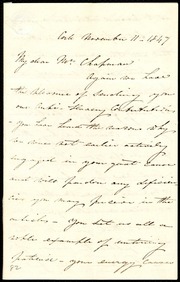 Cork November 11th 1847
My dear Mrs. Chapman
Again we have
the pleasure of sending you
our Cork Fancy Contributions,
you have heard the reasons why
we were not earlier actively
engaged in your great cause
and will pardon any deficien-
cies you may perceive in the
articles - You set us all a
noble example of untiring
patience - your energy